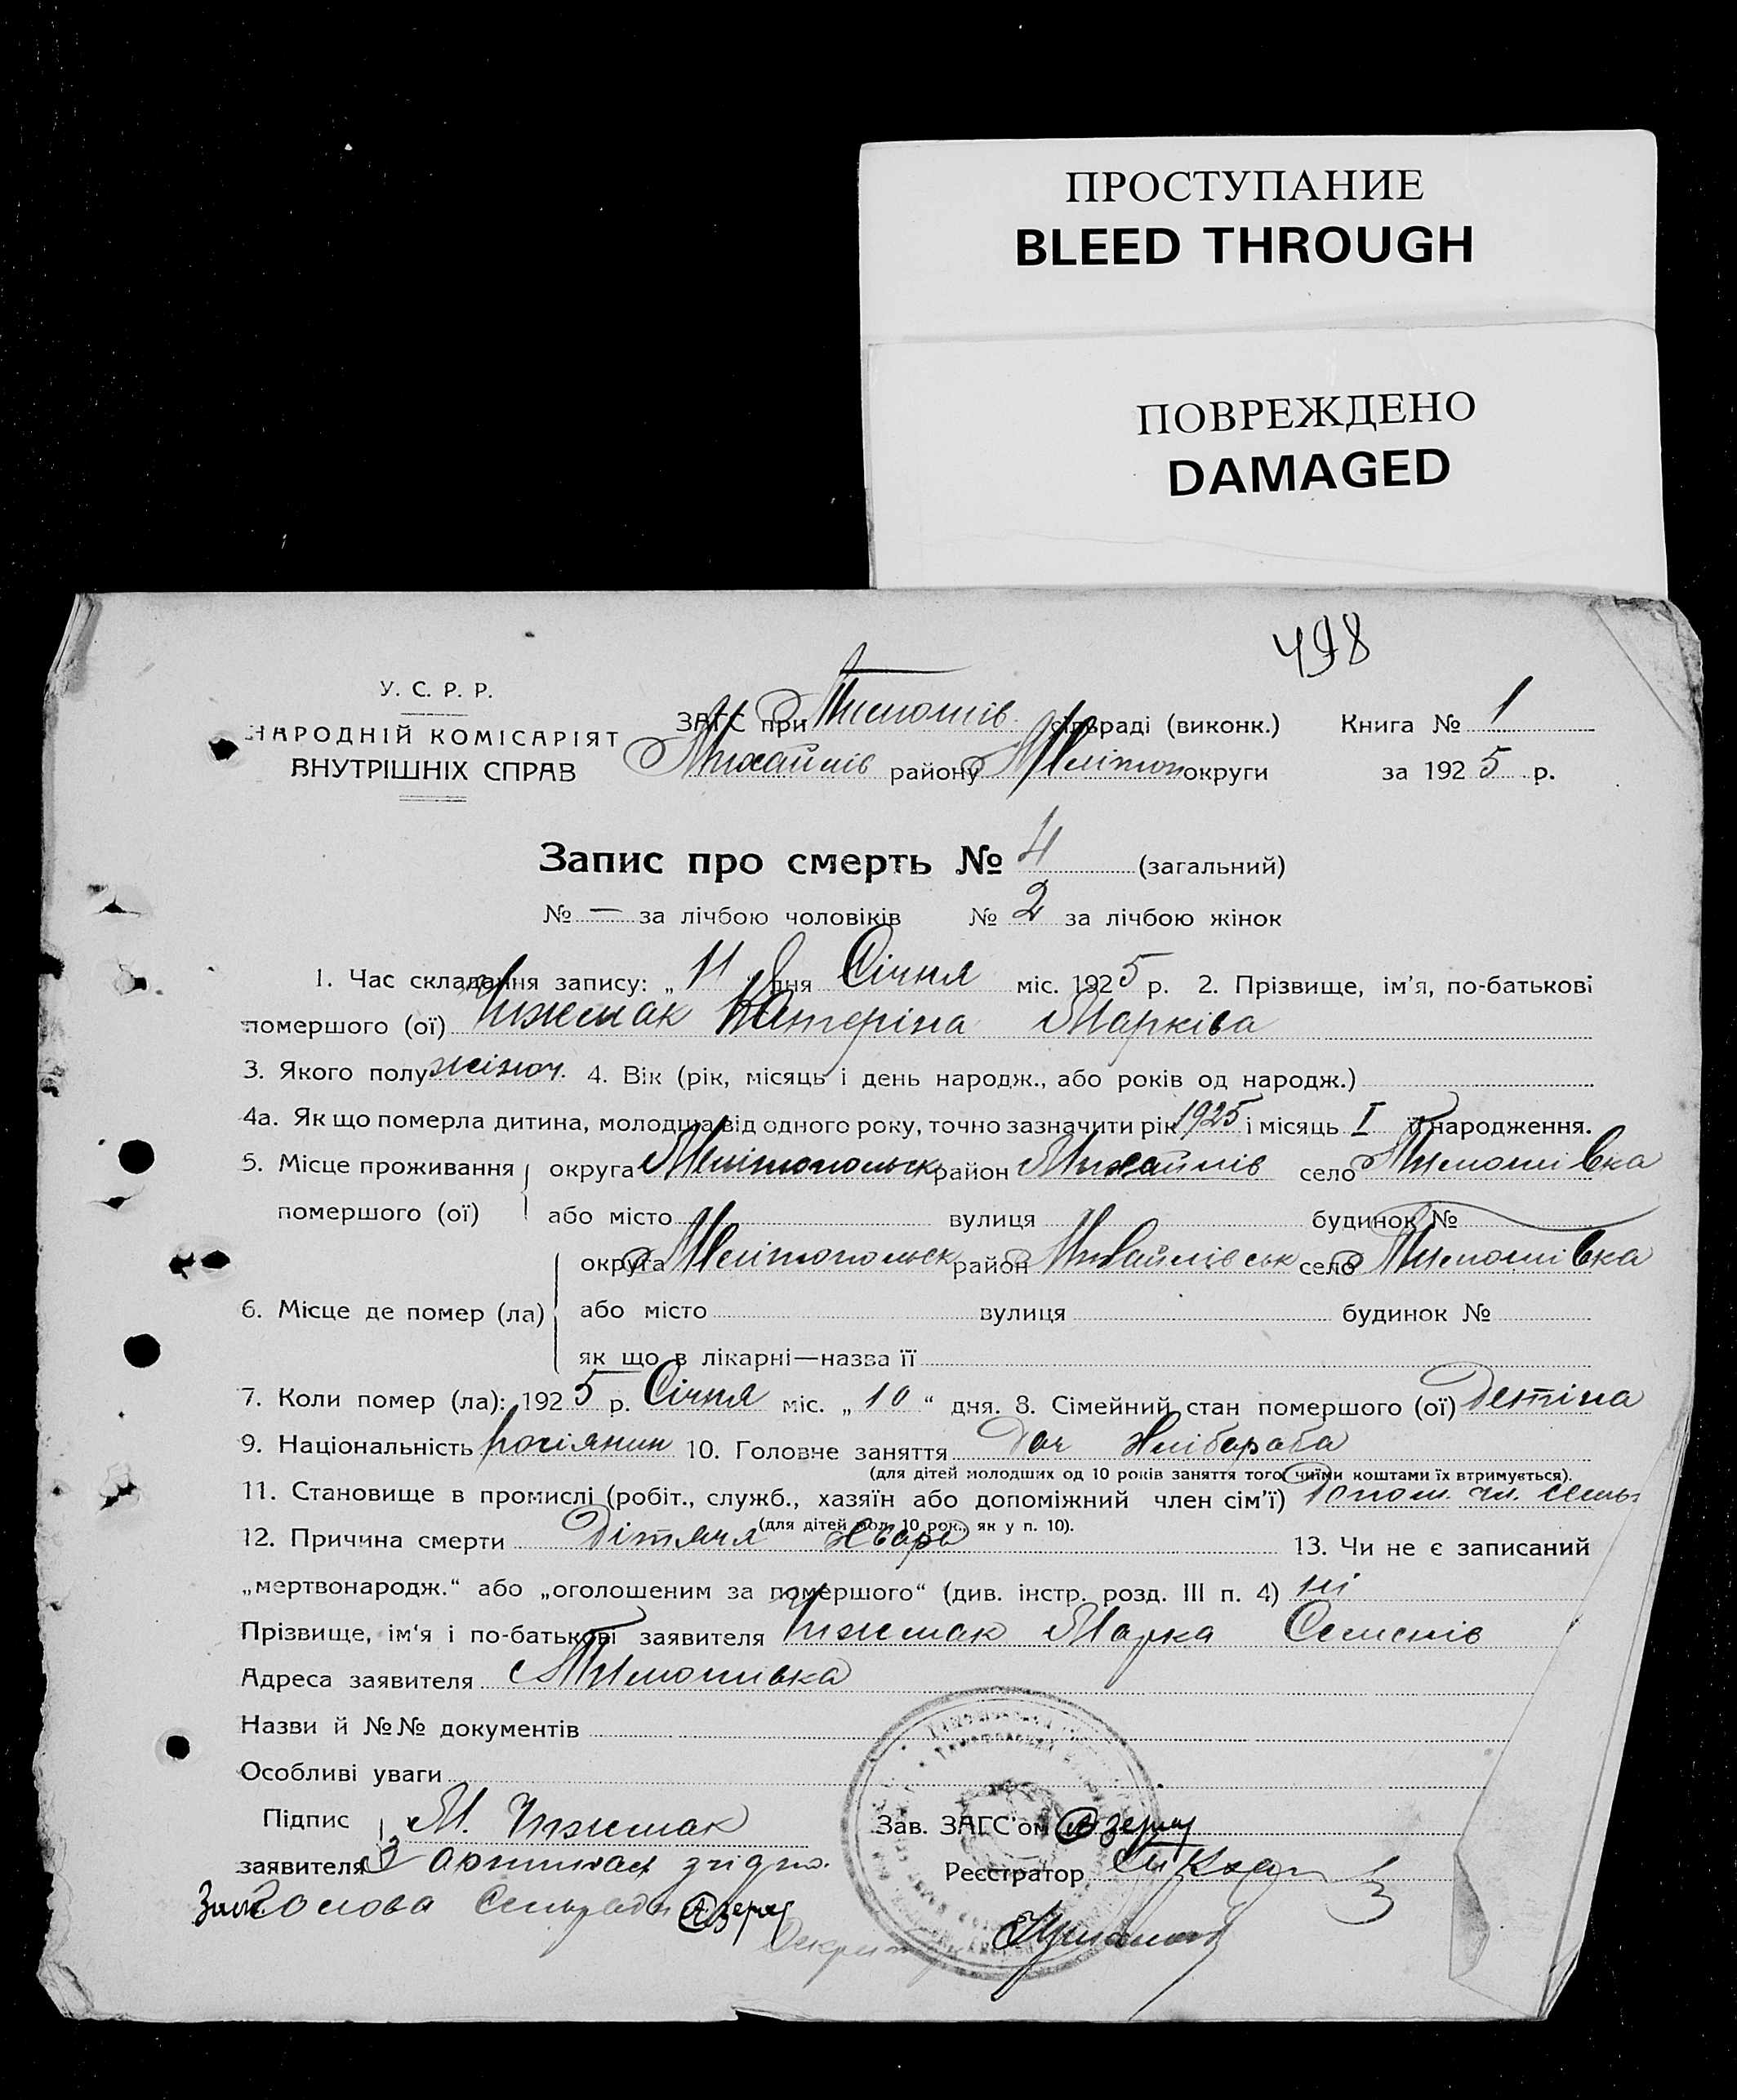 ПРОСТУПАНИЕ
BLEED THROUGH
ПОВРЕЖДЕНО
DAMAGED
498
У. С. Р. Р.
НАРОДНІЙ КОМІСАРІЯТ
ВНУТРІШНІХ СПРАВ
ЗАГС при Тимошів. сільраді (виконк.) Книга № 1
Михайлів району Мелітоп округи за 1925 р.
Запис про смерть № 4 (загальний)
№ — за лічбою чоловіків № 2 за лічбою жінок
1. Час складання запису: „ 11 дня Січня міс. 1925 р. 2. Прізвище, ім'я, по-батькові
помершого (ої) Чижмак Катеріна Марківа
3. Якого полу жіноч. 4. Вік (рік, місяць і день народж., або років од народж.)
4а. Як що померла дитина, молодша від одного року, точно зазначити рік 1925 і місяць I її народження.
5. Місце проживання округа Мелітопольск район Михайлів село Тимошівка
помершого (ої) або місто вулиця будинок №
округа Мелітопольск район Михайлівськ село Тимошівка
6. Місце де помер (ла) або місто вулиця будинок №
як що в лікарні—назва її
7. Коли помер (ла): 1925 р. Січня міс. „ 10 “ дня. 8. Сімейний стан помершого (ої) Детіна
9. Національність росіянин 10. Головне заняття Доч Хлібараба
(для дітей молодших од 10 років заняття того, чиїми коштами їх втримується).
11. Становище в промислі (робіт., служб., хазяїн або допоміжний член сім'ї) допом. чл. семь
(для дітей мол. 10 рок., як у п. 10).
12. Причина смерти Дітяча хворь 13. Чи не є записаний
„мертвонародж.“ або „оголошеним за помершого“ (див. інстр. розд. III п. 4) ні
Прізвище, ім'я і по-батькові заявителя Чижмак Марка Семенів
Адреса заявителя Тимошивка
Назви й №№ документів
Особливі уваги
Підпис М. Чижмак Зав. ЗАГС'ом
заявителя З оригиналом згідно. Реєстратор
Зам. Голова Сельради
Секретар